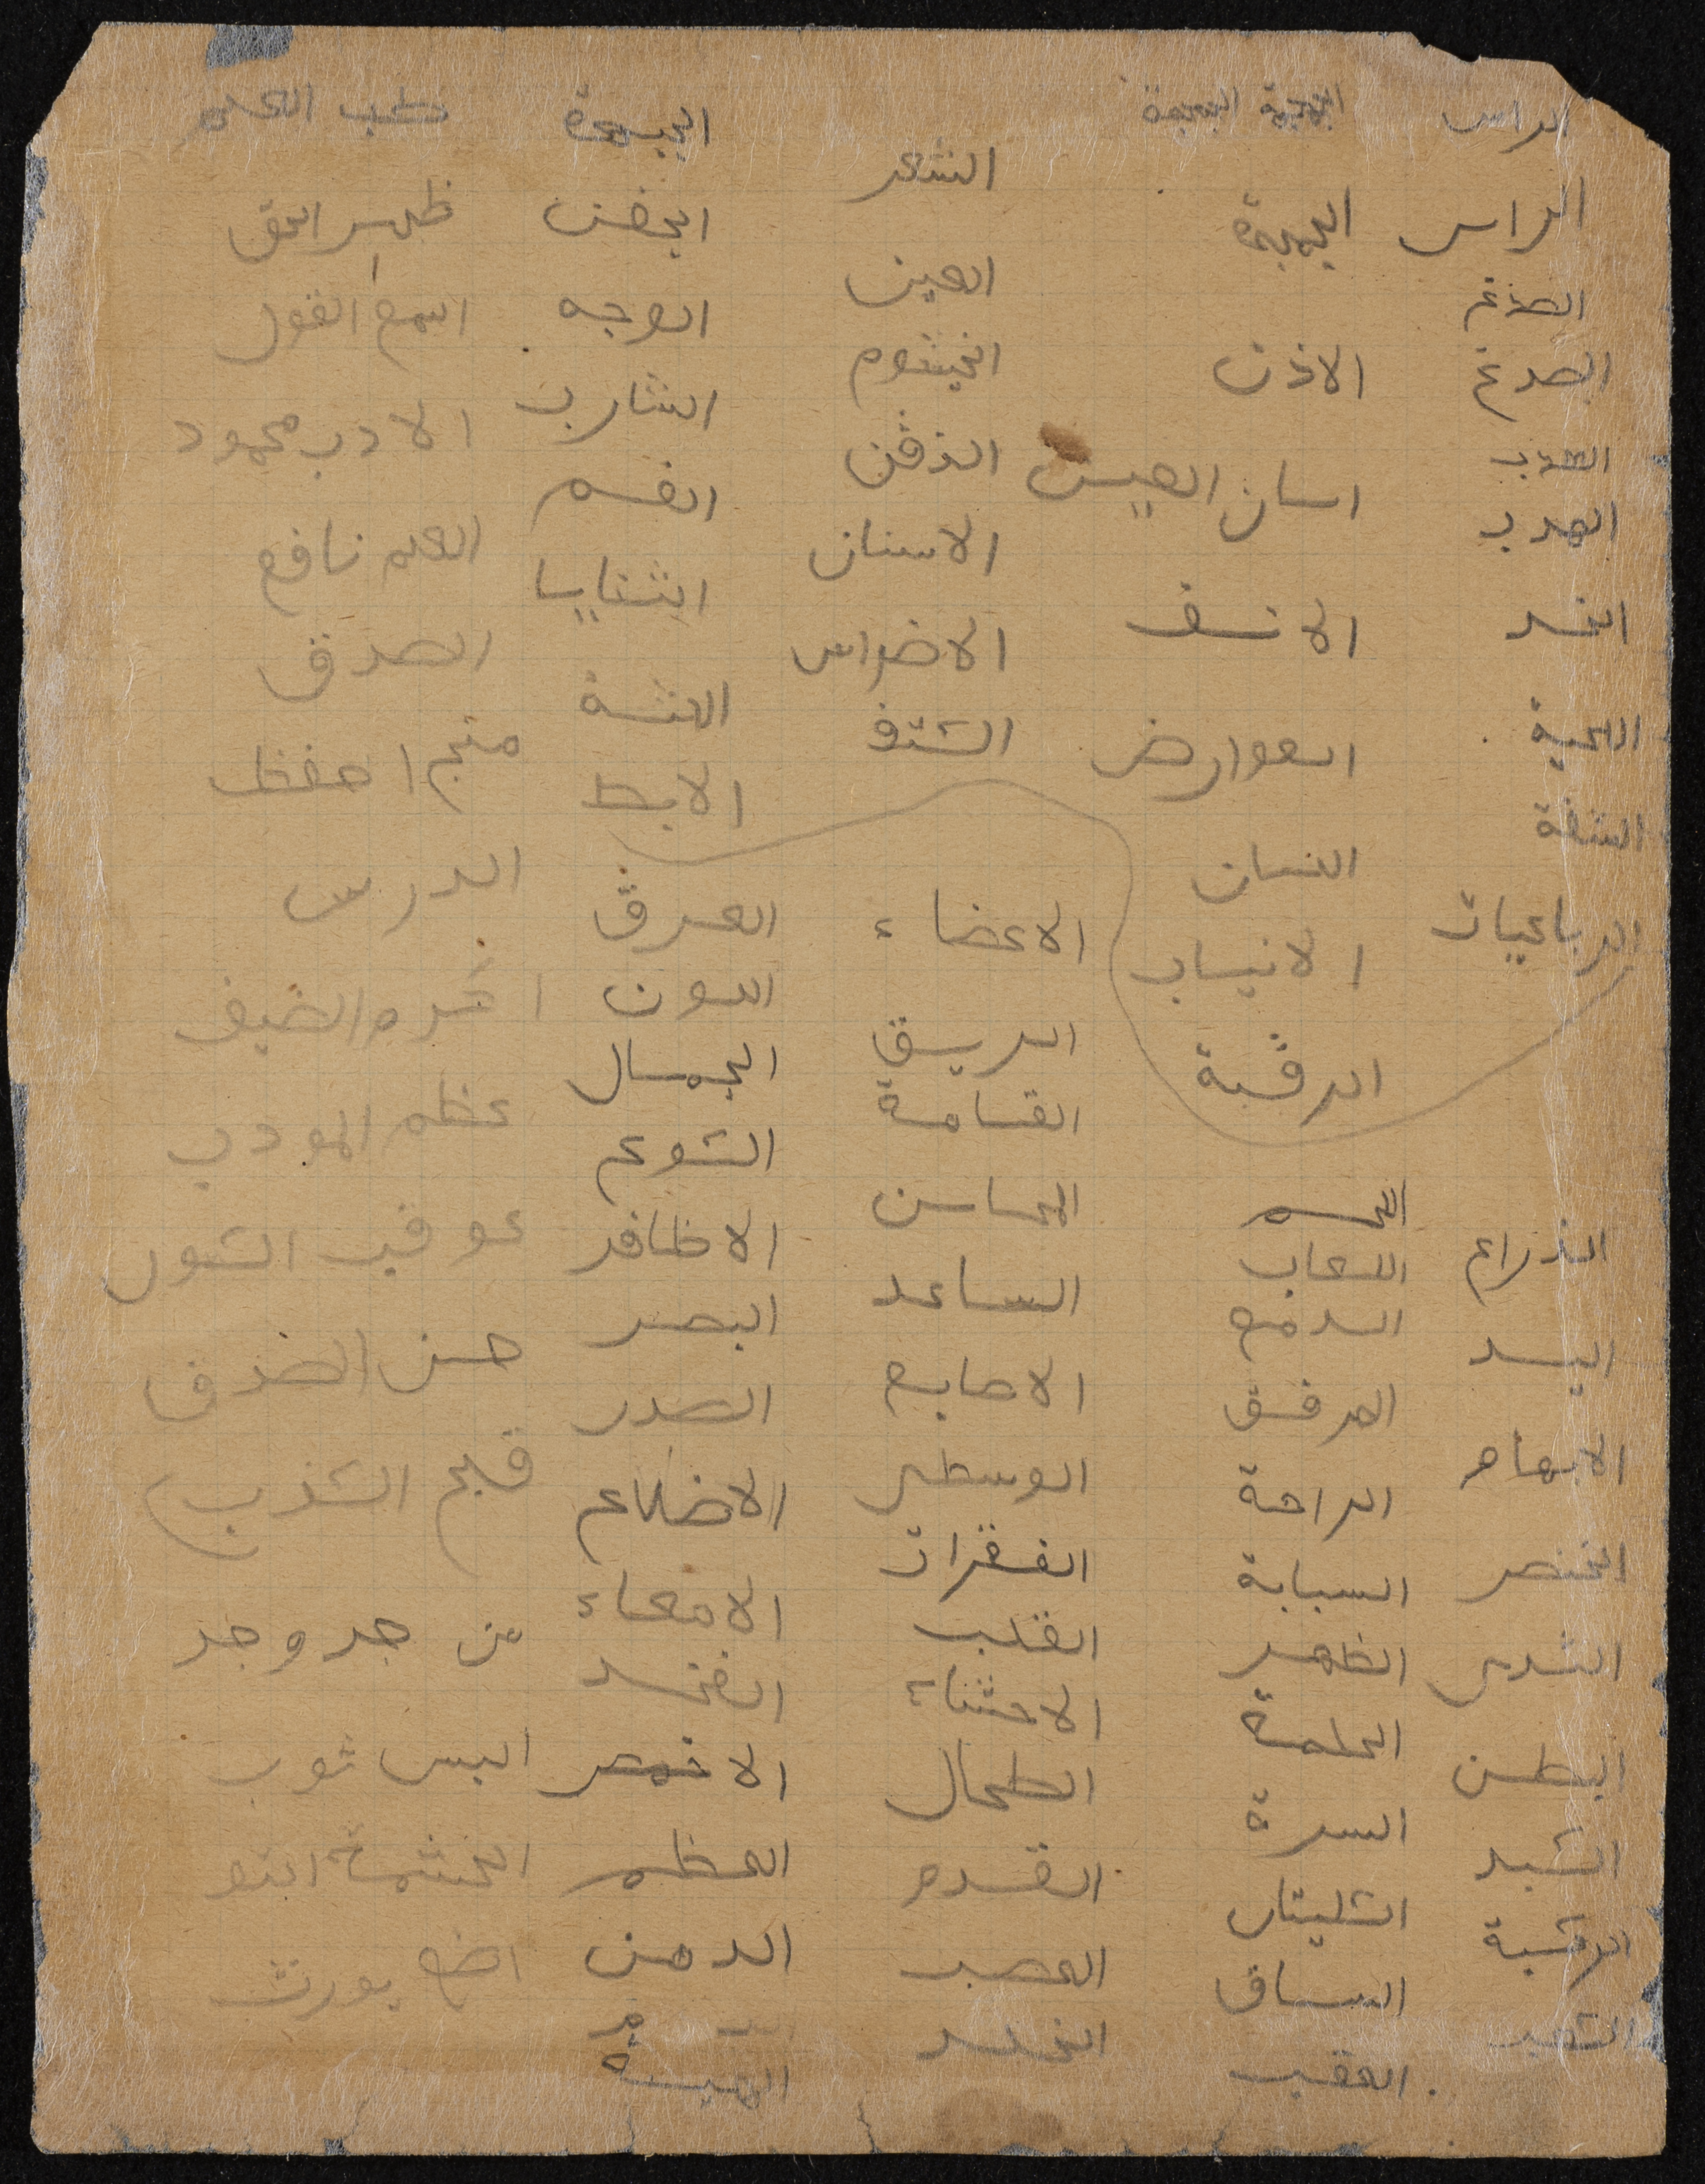 الراس الجمجمة الجمجمة
الراس الجمجمة الشعر الجبهة
الصدغ العين الجفن
الصدغ الاذن الخيشوم الوجه
الهدب اسان العين الذقن الشارب
الهدب الانف الاسنان الفم
الخد العوارض الاضراس الثنايا
اللحية اللسان الكتف اللثة
الشفة الانياب الابط
الرباعيات الرقبة الاعضاء العرق
اللون
الريق الجمال
القامة الكوع
اللحم المحاسن الاظافر
الذراع اللعاب الساعد البصر
اليد الدمع الاصابع الصدر
الابهام المرفق الوسطى الاضلاع
الخنصر الراحة الفقرات الامعاء
الثدى السبابة القلب الفخد
البطن الظهر الاحشاء الاخمص
الكبد الحلمة الطحال العظم
الركبة السرة القدم الدهن
الكليتان العصب
الساق الجلد
العقب الهيئة
ظهر الحق
اسمع القول
الادب محمود
العلم نافع
الصدق
منج احفظ
الدرس
اكرم الضيف
عظم المودب
عوقب
حسن الصدق
قبح الكذب
من جد وجد
البس ثوب
الحشمة
يورث